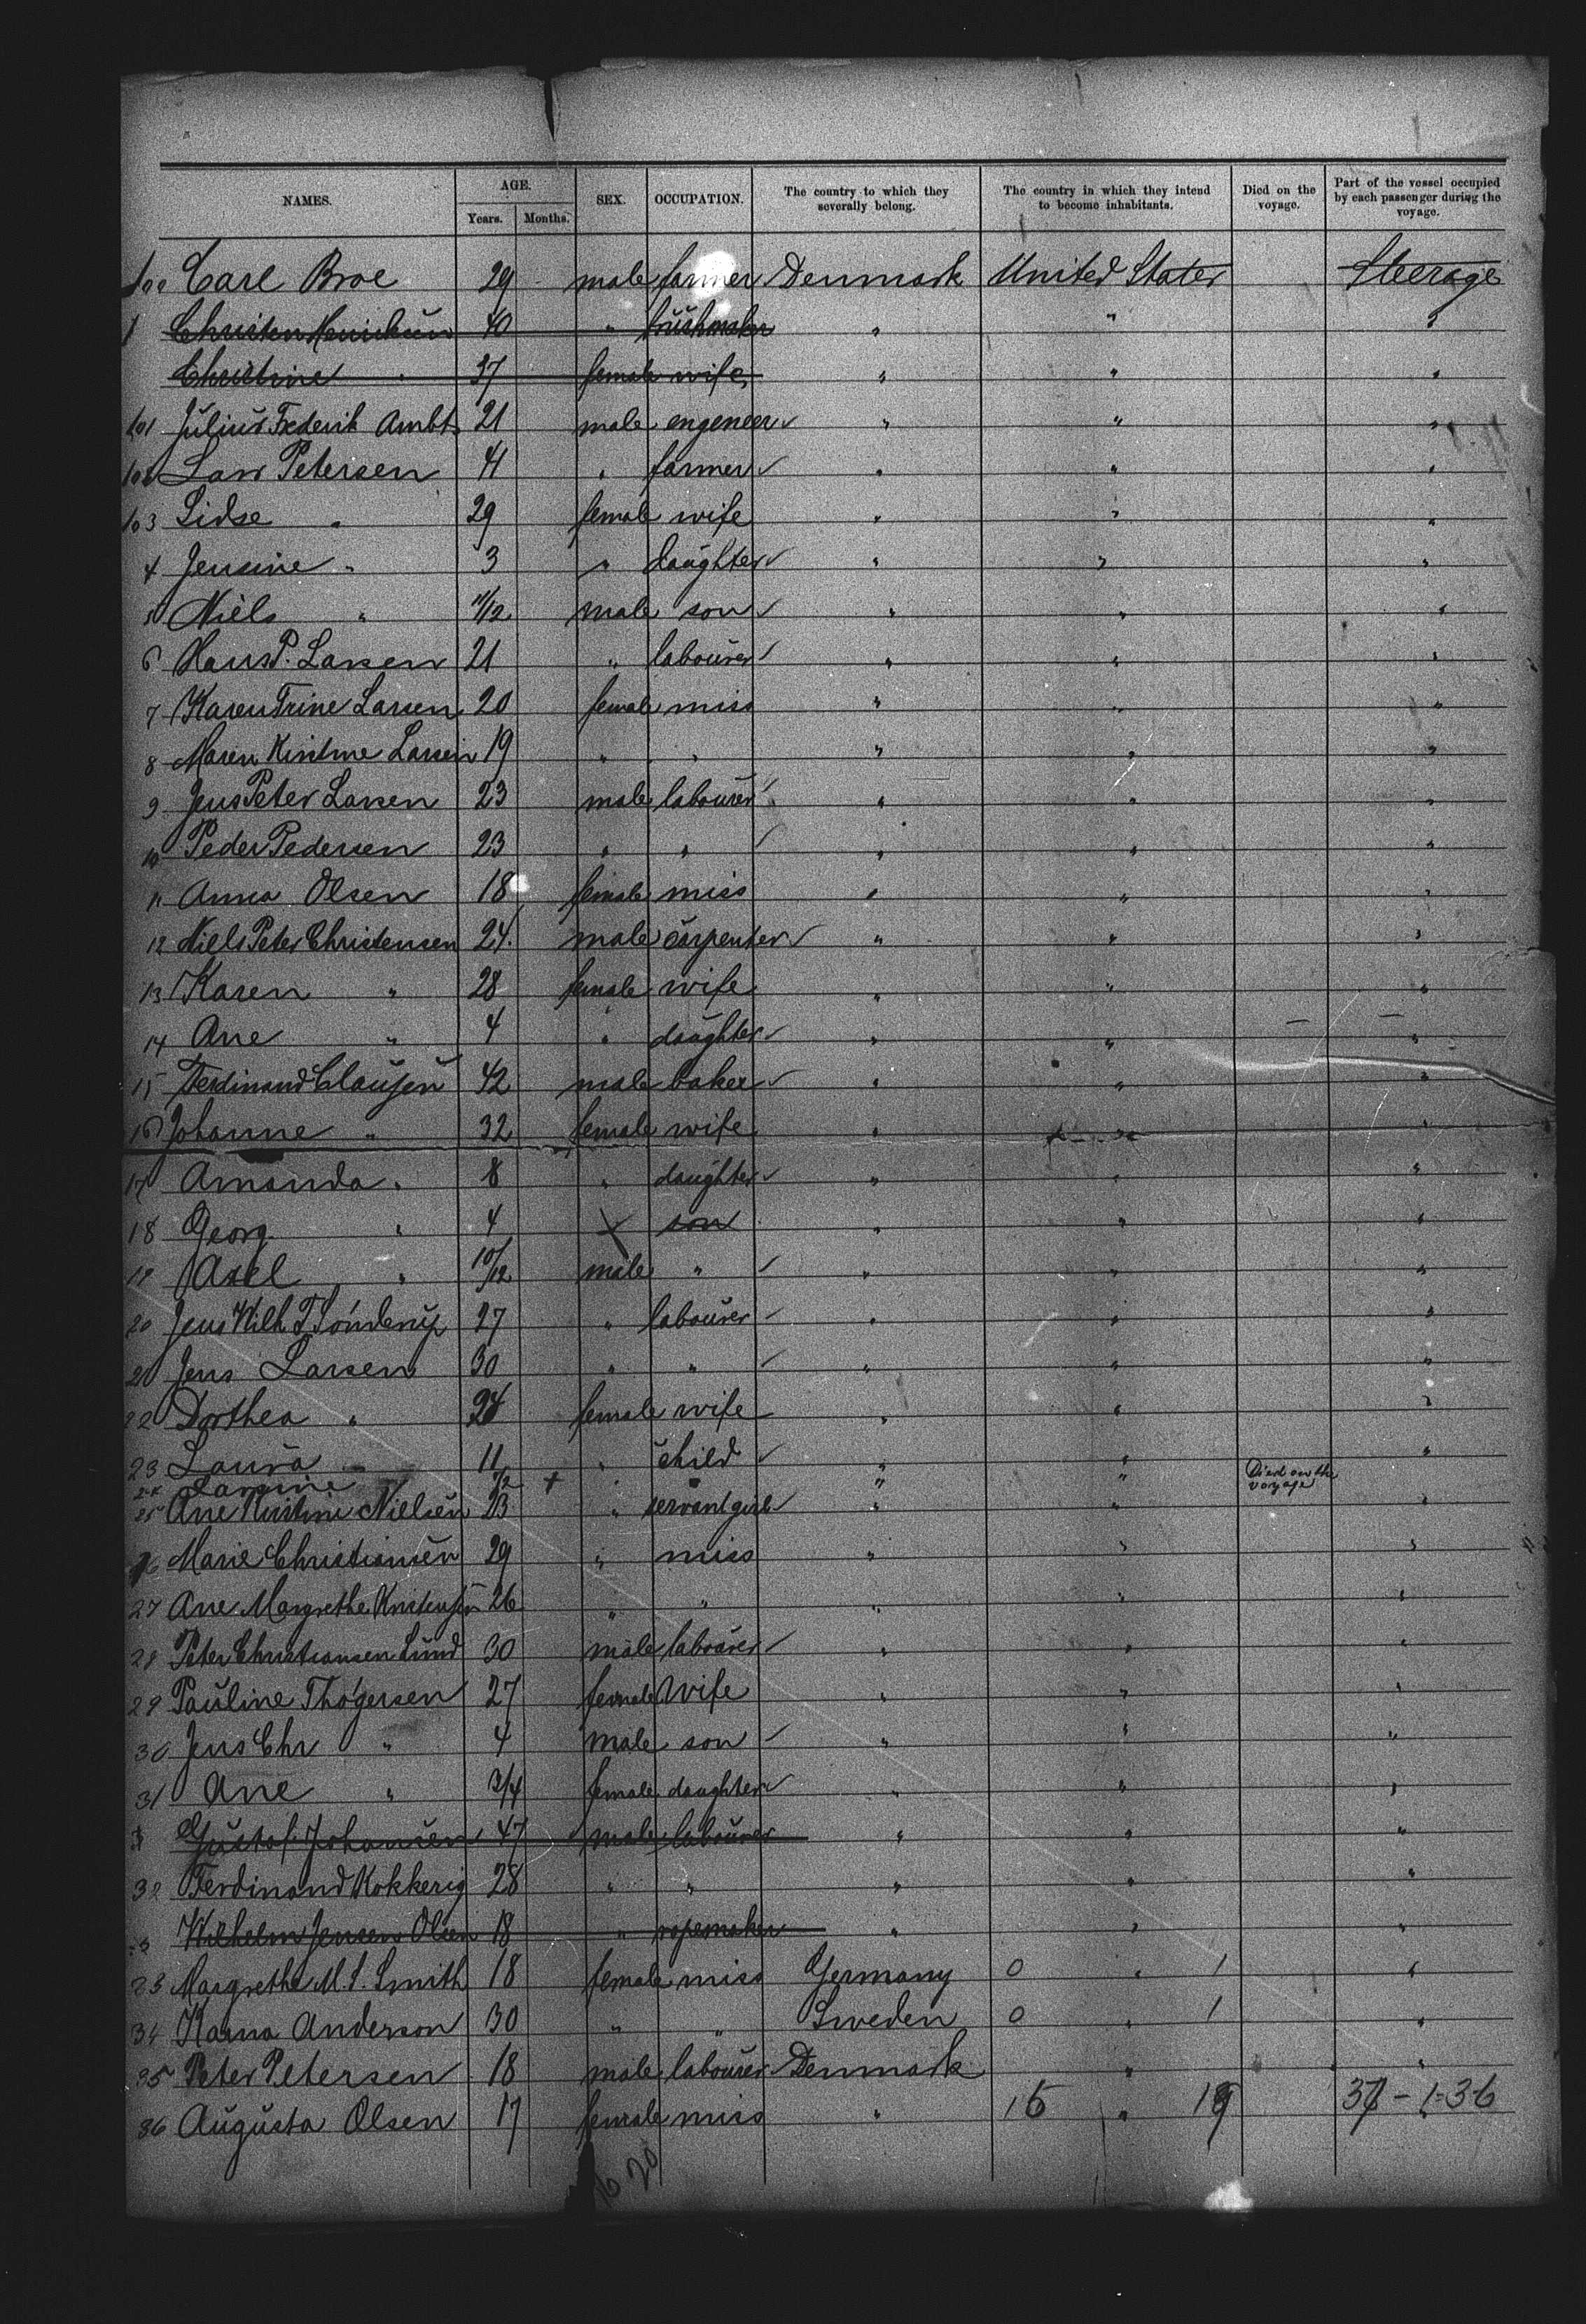 NAMES. AGE. Years. Months. SEX. OCCUPATION. The country to which they severally belong. The country in which they intend to become inhabitants. Died on the voyage. Part of the vessel occupied by each passenger during the voyage.
100 Carl Broe 29 male farmer Denmark United States Steerage
1 Christen 40 " brushmaker " " "
Christine " 37 female wife " " "
101 Julius Frederik Ambt 21 male engeneer " " "
102 Lars Petersen 41 " farmer " " "
103 Sidse " 29 female wife " " "
4 Jensine " 3 " daughter " " "
5 Niels " 11/12 male son " " "
6 Hans P. Larsen 21 " labourer " " "
7 Karen Trine Larsen 20 female miss " " "
8 Maren Kirstine Larsen 19 " " " " "
9 Jens Peter Larsen 23 male labourer " " "
10 Peder Pedersen 23 " " " " "
11 Anna Olsen 18 female miss " " "
12 Niels Peter Christensen 24 male carpenter " " "
13 Karen " 28 female wife " " "
14 Ane " 4 " daughter " " "
15 Ferdinand Clausen 42 male baker " " "
16 Johanne " 32 female wife " " "
17 Amanda " 8 " daughter " " "
18 Georg " 4 son " " "
19 Axel " 10/12 male " " " "
20 Jens Wilh T Sønderup 27 " labourer " " "
21 Jens Larsen 30 " " " " "
22 Dorthea " 24 female wife " " "
23 Laura " 11 " child " " "
24 Larsine " + " " " " Died on the voyage
25 Ane Kirstine Nielsen 23 " servant girl " " "
26 Marie Christiansen 29 " miss " " "
27 Ane Margrethe Kristensen 26 " " " " "
28 Peter Christiansen Lund 30 male labourer " " "
29 Pauline Thøgersen 27 female wife " " "
30 Jens Chr " 4 male son " " "
31 Ane " 3/4 female daughter " " "
Gustaf Johansen 47 male labourer " " "
32 Ferdinand Kokkerig 28 " " " " "
Wilhelm Jensen Olsen 18 " ropemaker " " "
33 Margrethe M. S. Smith 18 female miss Germany 0 " 1 "
34 Karna Anderson 30 " " Sweden 0 " 1 "
35 Peter Petersen 18 male labourer Denmark " "
36 Augusta Olsen 17 female miss " 16 " 19 37 - 1 = 36
16 20